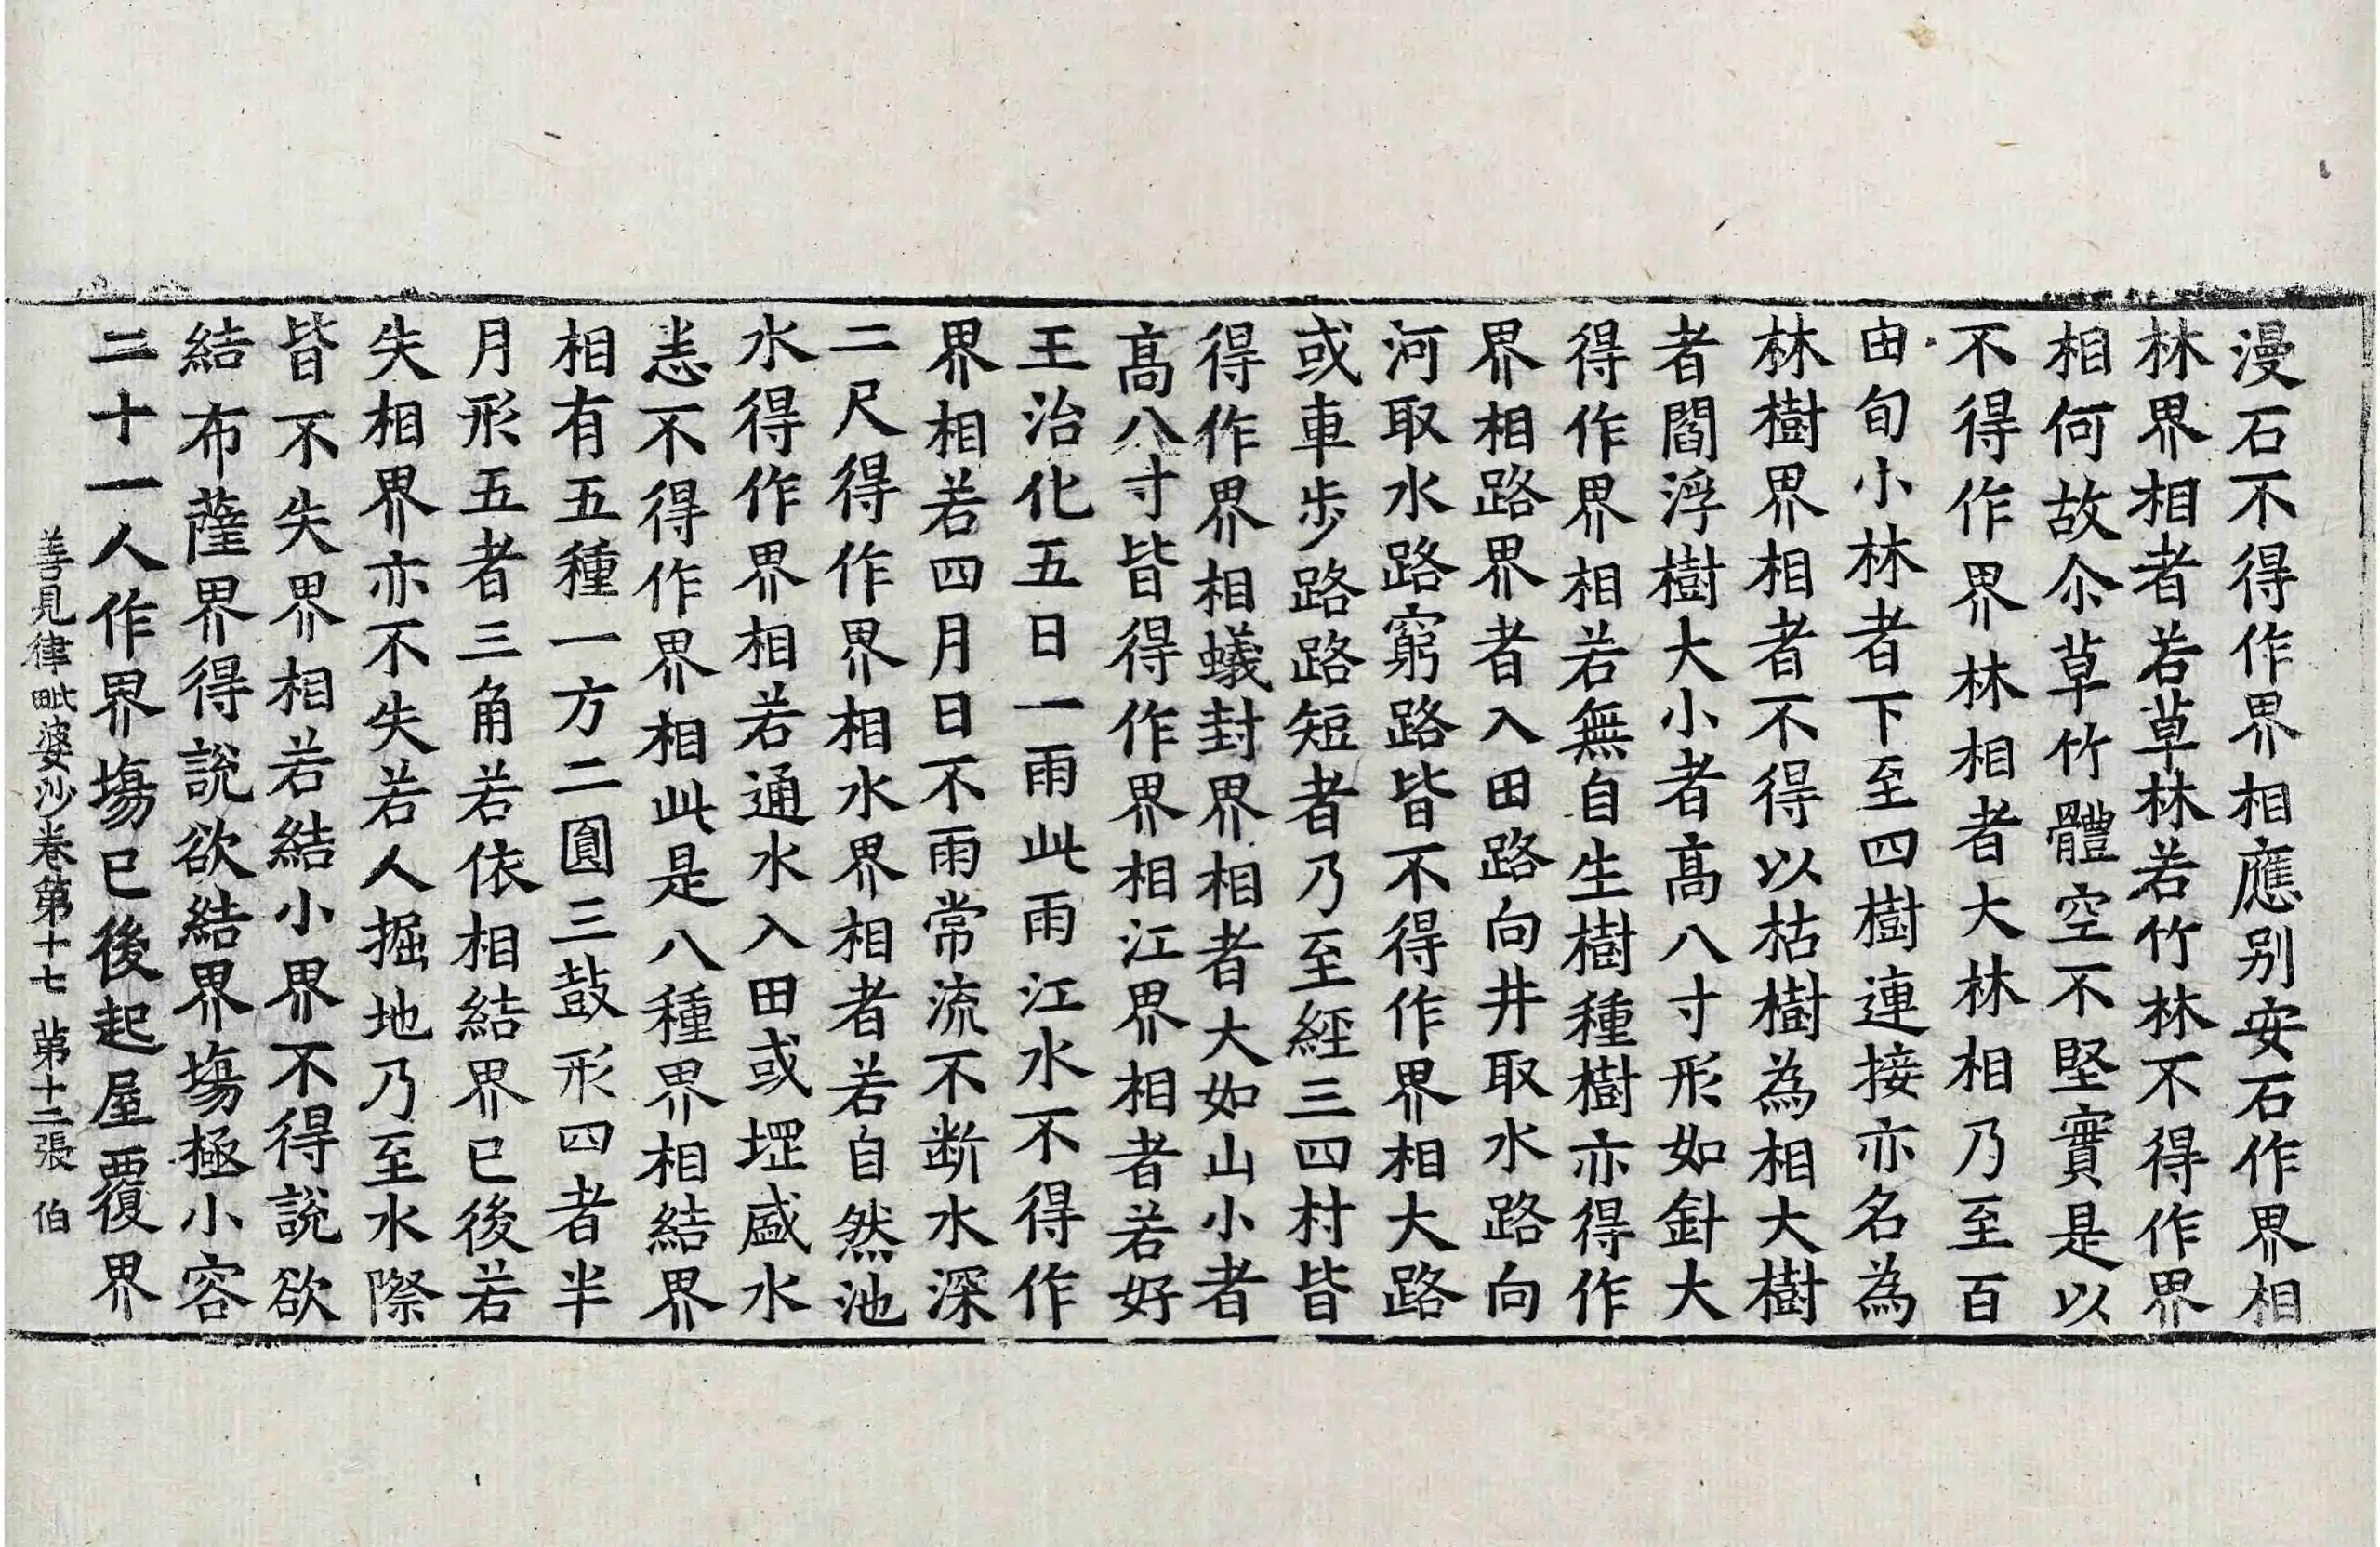 漫石不得作界相應别安石作界相
林界相者若草林若竹林不得作界
相何故尒草竹體空不堅實是以
不得作界林相者大林相乃至百
由旬小林者下至四樹連接亦名為
林樹界相者不得以枯樹為相大樹
者閻浮樹大小者髙八寸形如針大
得作界相若無自生樹種樹亦得作
界相路界者入田路向井取水路向
河取水路窮路皆不得作界相大路
或車步路路短者乃至經三四村皆
得作界相蟻封界相者大如山小者
髙八寸皆得作界相江界相者若好
王治化五日一雨此雨江水不得作
界相若四月日不雨常流不断水深
二尺得作界相水界相者若自然池
水得作界相若通水入田或堽盛水
恙不得作界相此是八種界相結界
相有五種一方二圓三鼓形四者半
月形五者三角若依相結界已後若
失相界亦不失若人掘地乃至水際
皆不失界相若結小界不得說欲
結布薩界得說欲結界塲極小容
二十一人作界塲已後起屋覆界
善見律毗婆沙卷第十七 苐十二張 伯